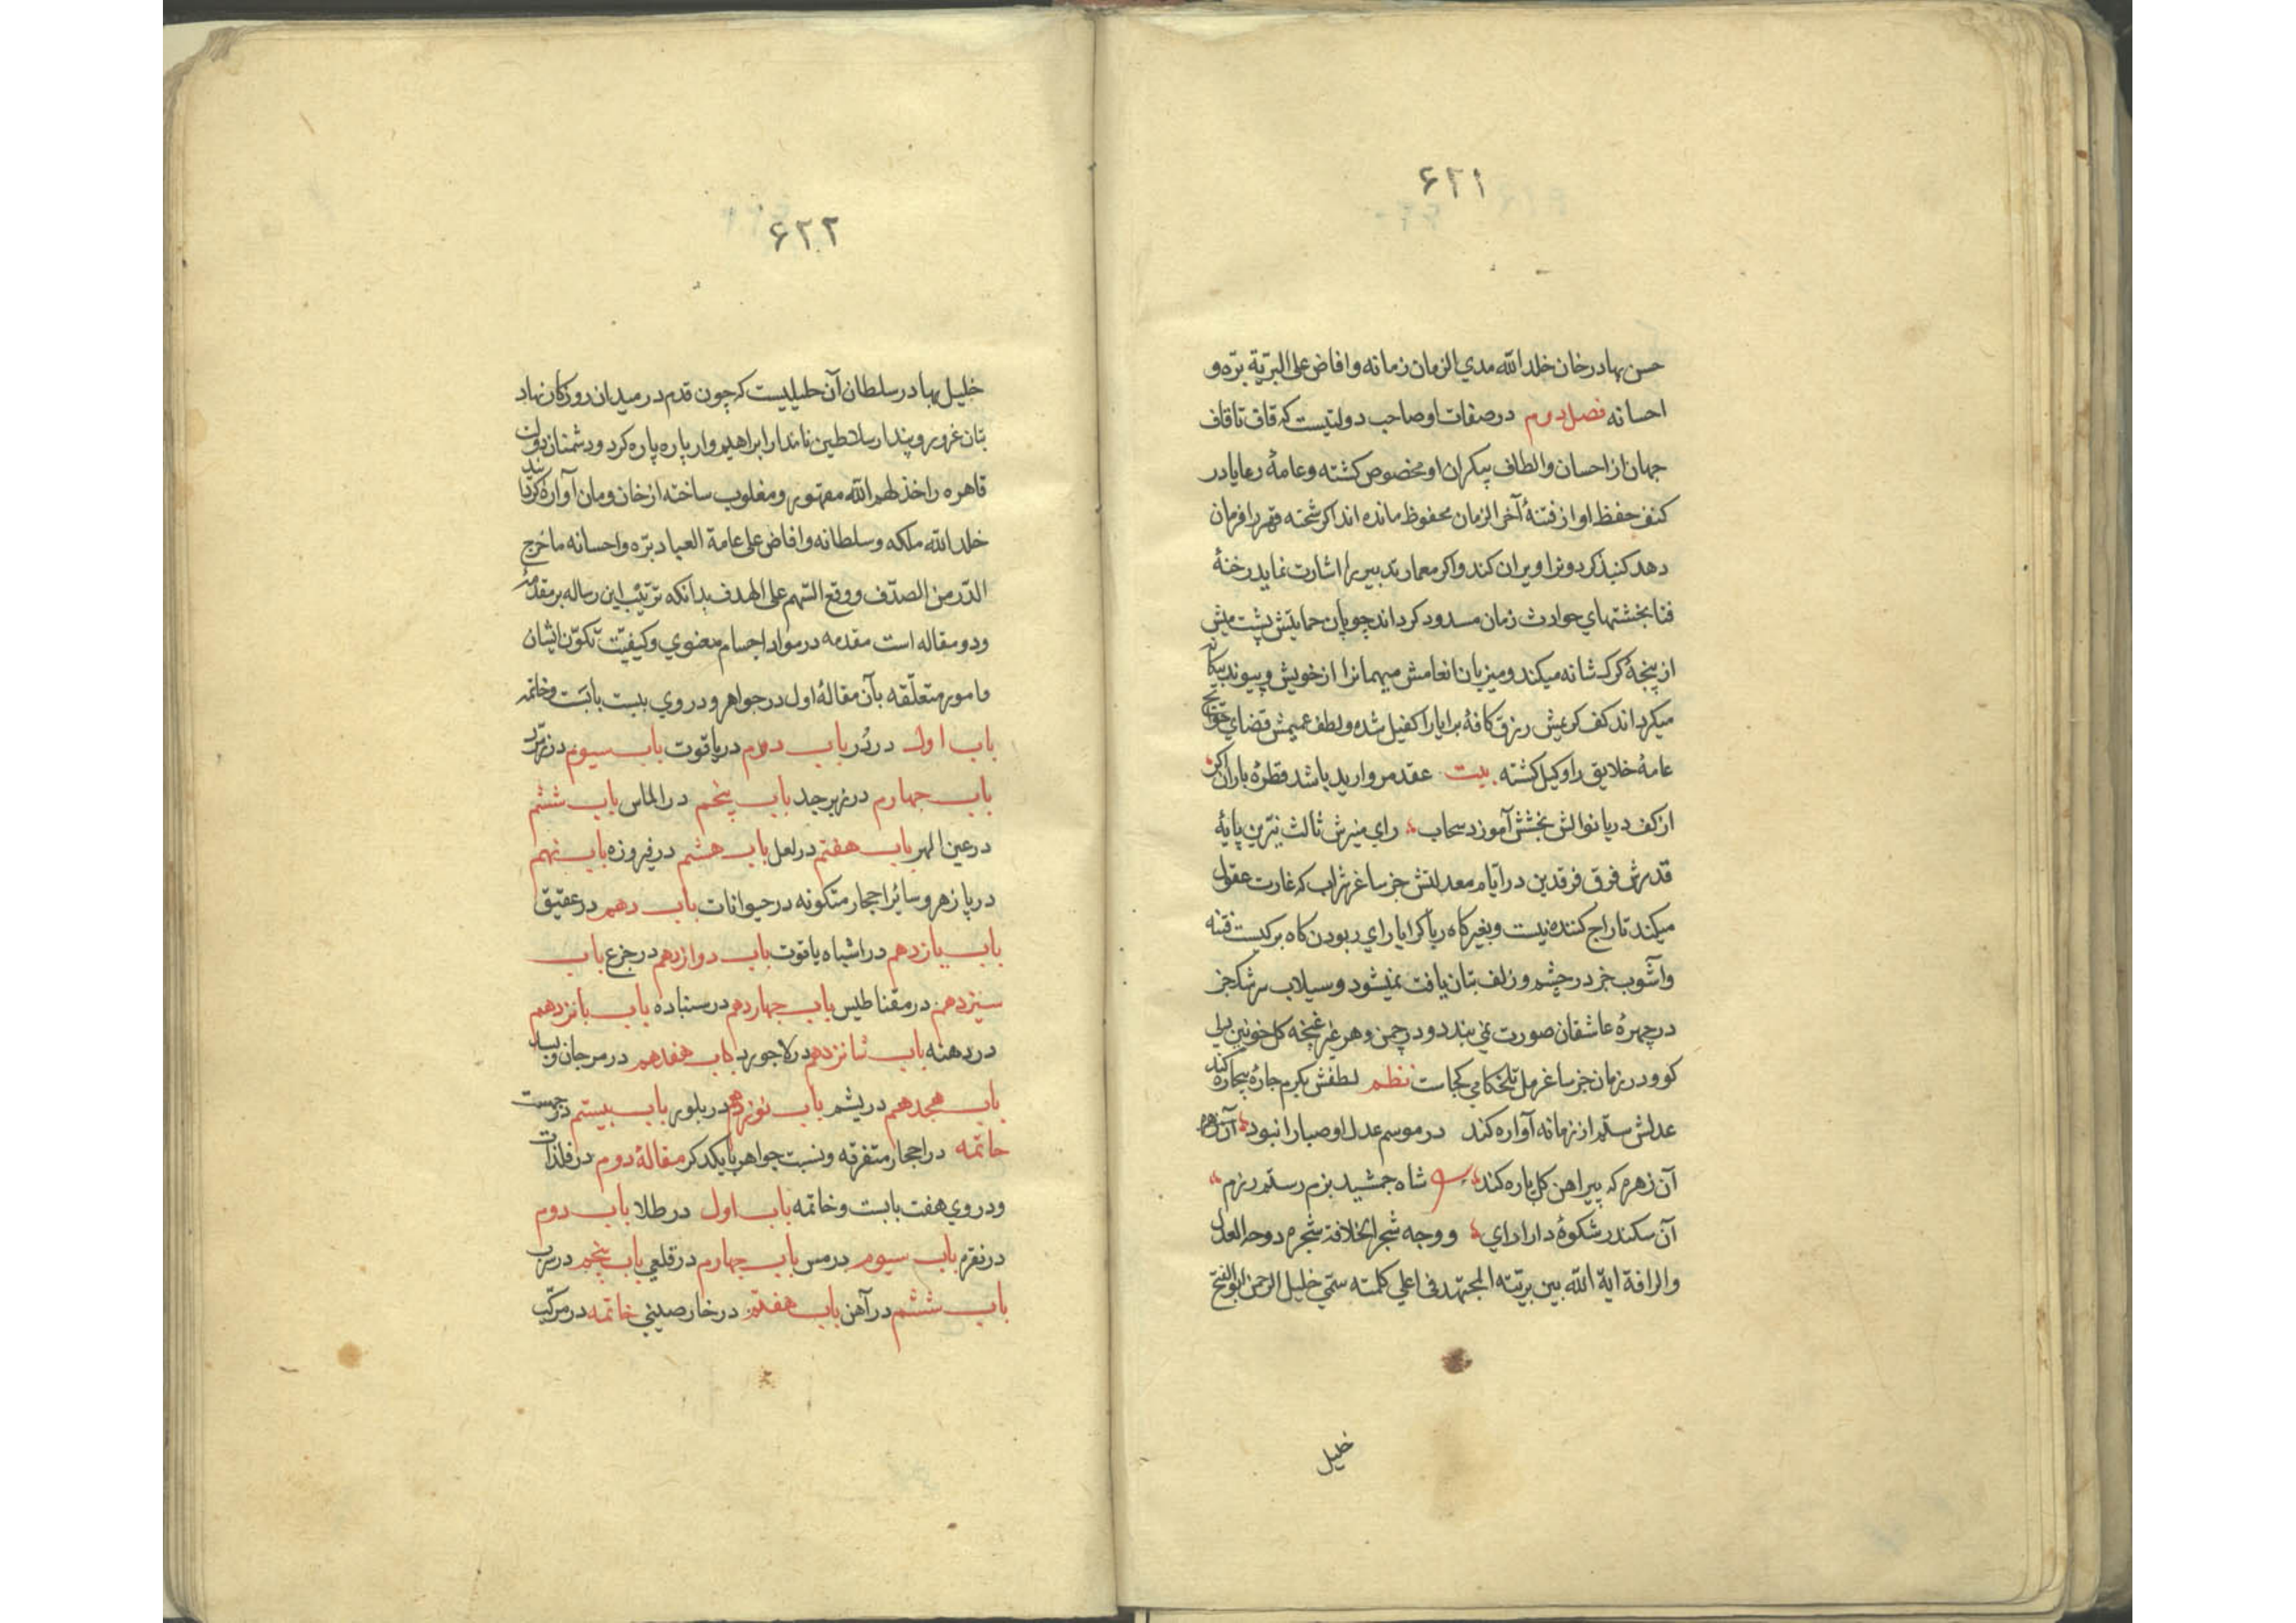 ۶۲۱
حسن بهادر خان خلد الله مدي الزمان زمانه و افاض علی البریّة برّه و
احسانه فصل دوم در صفات او صاحب دولتیست که قاف تا قاف
جهان از احسان و الطاف بیکران او مخصوص کشته و عامهٔ رعایا در
کنف حفظ او از فتنهٔ آخر الزمان محفوظ مانده اند اکر شحنه قهر را فرمان
دهد کنبذ کردونرا ویران کند و اکر معمار تدبیر را اشارت نماید رخنهٔ
فنا بخشتهاي حوادث زمان مسدود کرداند چوپان حمایتش پشت میش
از پنجهٔ کرک شانه میکند و میزبان انعامش میهمانرا از خویش و پیوند بیکانه
میکرداند کف کریمش رزق کافهٔ برایا را کفیل شده و لطف عمیمش قضاي حوایج
عامهٔ خلایق را وکیل کشته بیت عقد مروارید باشد قطرهٔ باران اکر
از کف دریا نوالش بخشش آموزد سحاب راي منیرش ثالث نیّرین پایهٔ
قدرش فرق فرقدین در ایّام معدلتش جز ساغر شراب که غارت عقول
میکند تاراج کننده نیست و بغیر کاه ربا کرا یاراي ربودن کاه برکیست فتنه
و آشوب جز در چشم و زلف بتان یافت نمیشود و سیلاب سرشک جز
در چهرهٔ عاشقان صورت نمي بندد و در چمن دهر غیر غنچه کل خونین دلي
کو و در زمان جز ساغر مل تلخکامي کجاست نظم لطفش بکرم چارهٔ بیچاره کند
عدلش ستم از زمانه آواره کند در موسم عدل او صبا را نبود آن زهره
آن زهره که پیراهن کل پاره کند شاه جمشید بزم رستم رزم
آن سکندر شکوهٔ دارا راي و وجه شجر الخلافة شجره دوحة العدل
و الرافة ایة الله بین بریّته المجتهد فی اعلي کلمته سمّي خلیل الرحمن ابو الفتح
خلیل
۶۲۲
خلیل بهادر سلطان آن خلیلیست که چون قدم در میدان روزکار نهاد
بتان غرور و پندار سلاطین نامدار ابراهیم وار پاره پاره کرد و دشمنان دولت
قاهره را خذلهم الله مقهور و مغلوب ساخته از خان و مان آواره کردانید
خلد الله ملکه و سلطانه و افاض علی عامة العباد برّه و احسانه ما خرج
الدّر من الصدّف و وقع السّهم علی الهدف بدانکه ترتیب این رساله بر مقدّمهٔ
و دو مقاله است مقدمه در مواد اجسام معنوي و کیفیّت تکوّن ایشان
و امور متعلّقه بآن مقالهٔ اول در جواهر و در وي بیست بابست و خاتمه
باب اول در دُر باب دوم در یاقوت باب سیوم در زمرّد
باب چهارم در زبرجد باب پنجم در الماس باب ششم
در عین الهر باب هفتم در لعل باب هشتم در فیروزه باب نهم
در پازهر و سائر احجار متکونه در حیوانات باب دهم در عقیق
باب یازدهم در اشباه یاقوت باب دوازدهم در جزع باب
سیزدهم در مقناطیس باب چهاردهم در سنباده باب پانزدهم
در دهنه باب شانزدهم در لاجورد باب هفدهم در مرجان و بسد
باب هجدهم در یشم باب نوزدهم در بلور باب بیستم در جمست
خاتمه در احجار متفرقه و نسبت جواهر با یکدکر مقالهٔ دوم در فلذات
و در وي هفت بابت و خاتمه باب اول در طلا باب دوم
در نقره باب سیوم در مس باب چهارم در قلعي باب پنجم در سرب
باب ششم در آهن باب هفتم در خارصیني خاتمه در مرکّب